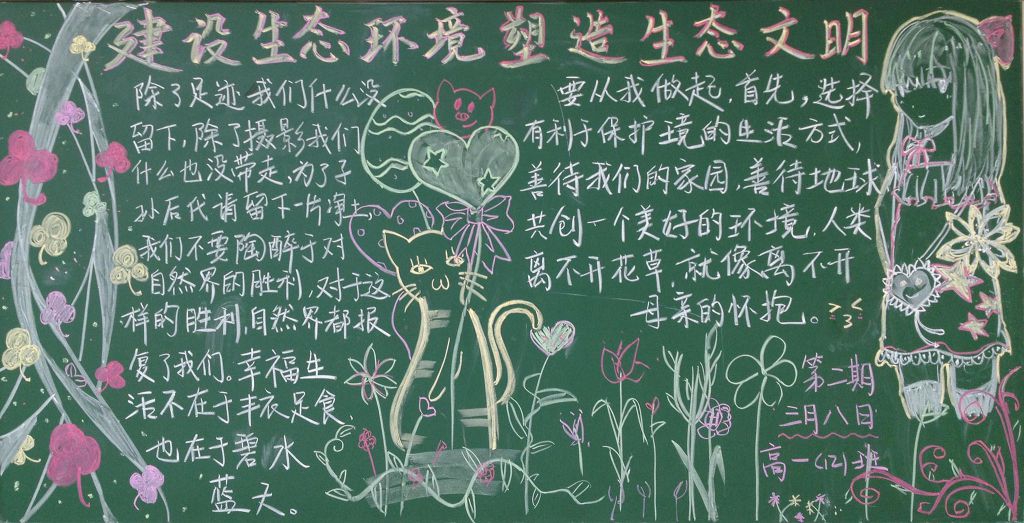 建设生态环境塑造生态文明
除了足迹我们什么没
留下,除了摄影我们
什么也没带走,为了子
孙后代请留下一片净土
我们不要陶醉于对
自然界的胜利,对于这
样的胜利,自然界都报
复了我们。幸福生
活不在于丰衣足食,
也在于碧水
蓝天。
要从我做起,首先,选择
有利于保护境的生活方式,
善待我们的家园,善待地球
共创一个美好的环境,人类
离不开花草,就像离不开
母亲的怀抱。
第二期
三月八日
高一(12)班